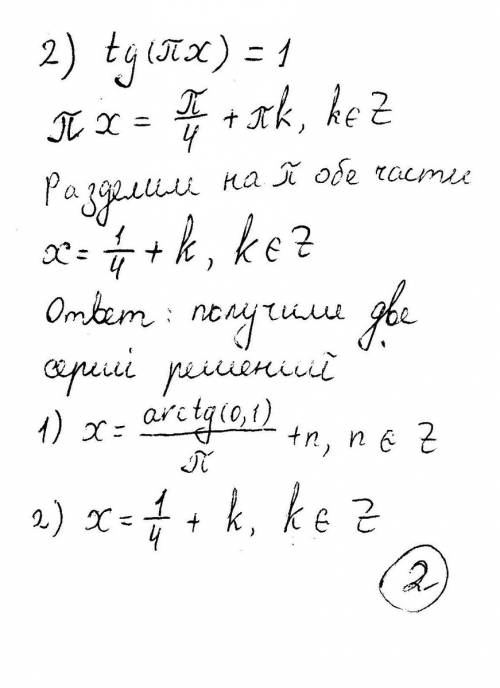 2) tg(πx) = 1
πx = π/4 + πk, k∈Z
Разделим на π обе части
x = 1/4 + k, k∈Z
Ответ: получим две
серий решений
1) x = arctg(0,1)/π + n, n∈Z
2) x = 1/4 + k, k∈Z
2